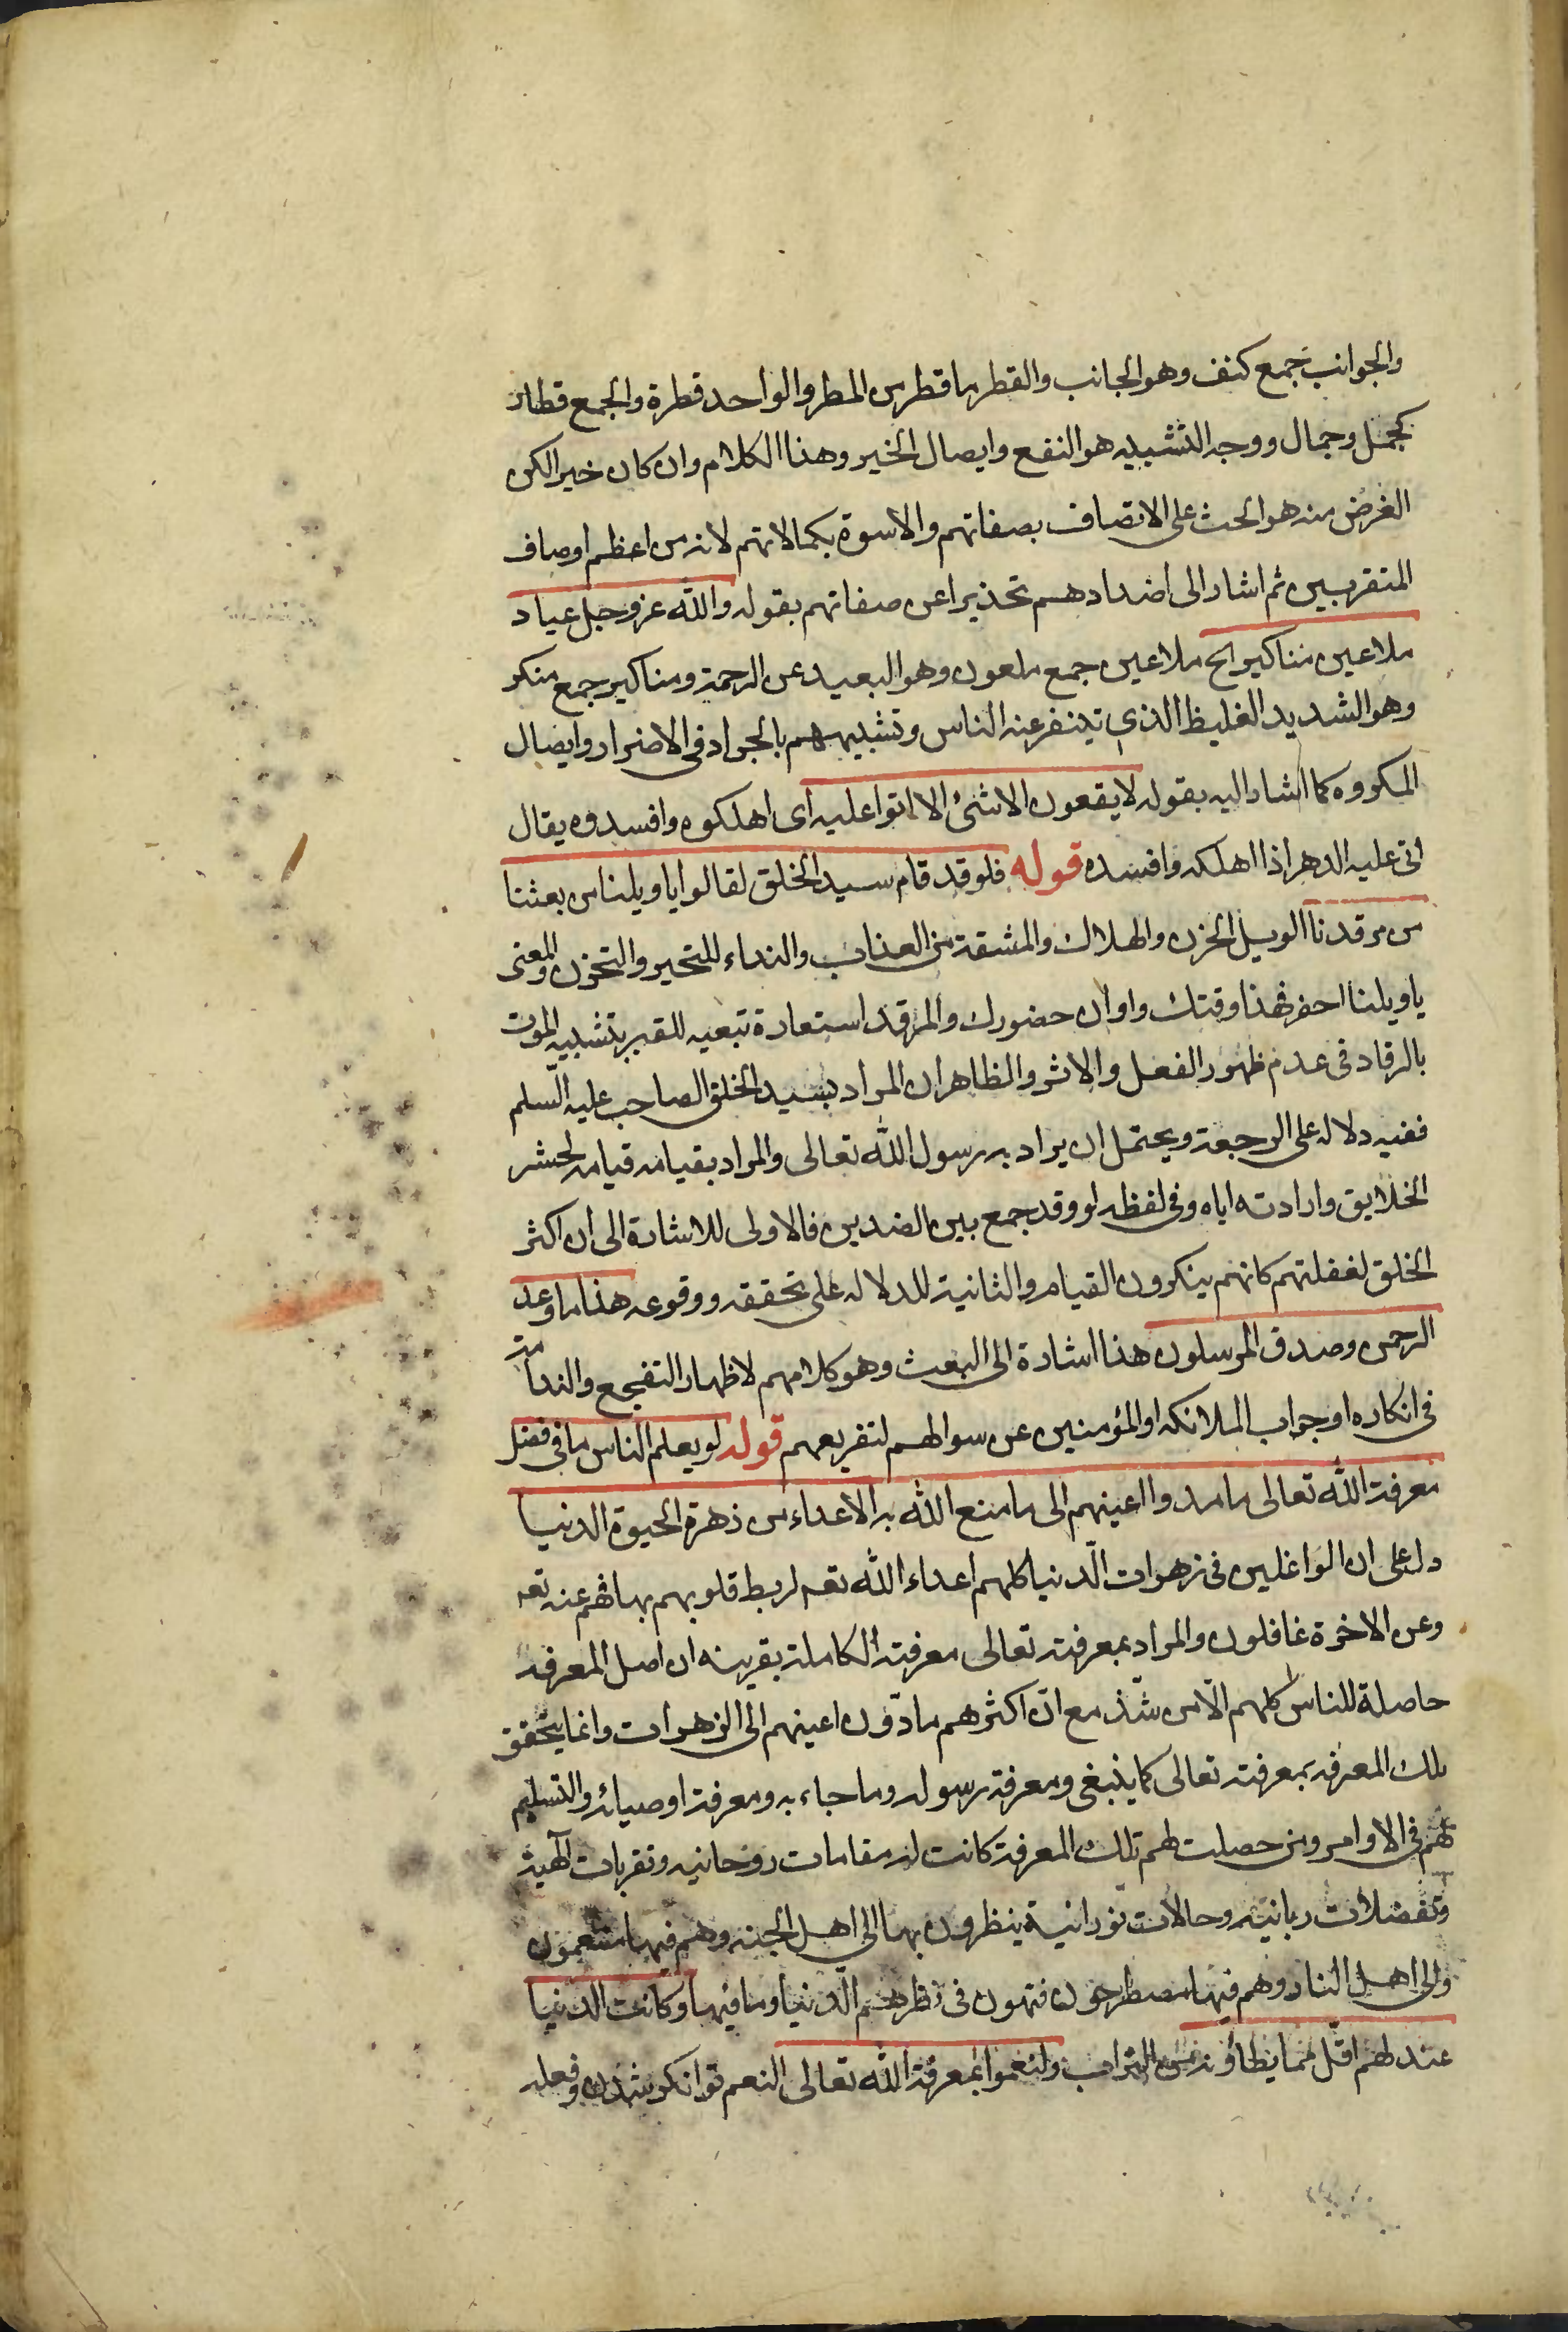 والجوانب جمع كنف وهو الجانب والقطر ما قطر من المطر والواحد قطرة والجمع قطار
كجمل وجمال ووجه التشبيه هو النفع وايصال الخير وهذا الكلام وان كان خيرا لكن
الغرض منه هو الحث على الاتصاف بصفاتهم والاسوة بكمالاتهم لانه من اعظم اوصاف
المتقربين ثم اشار الى اضدادهم تحذيرا عن صفاتهم بقوله والله عز وجل عباد
ملاعين مناكير الخ ملاعين جمع ملعون وهو البعيد عن الرحمة ومناكير جمع منكر
وهو الشديد الغليظ الذي يتنفر عنه الناس وتشبيههم بالجراد في الاضرار وايصال
المكروه كما اشار اليه بقوله لا يقعون الا شئ الا اتوا عليه اى اهلكوه وافسدوه يقال
اتى عليه الدهر اذا اهلكه وافسده قوله فلو قد قام سيد الخلق لقالوا يا ويلنا من بعثنا
من مرقدنا الويل الحزن والهلاك والمشقة من العذاب والنداء للتحير والتحزن والمعنى
يا ويلنا احضر فهذا وقتك واوان حضورك والمرقد استعارة تبعيه للقبر بتشبيه الموت
بالرقاد في عدم ظهور الفعل والاثر والظاهر ان المراد بسيد الخلق الصاحب عليه السلم
ففيه دلاله على الرجعة ويحتمل ان يراد به رسول الله تعالى والمراد بقيامه قيامه لحشر
الخلايق وارادته اياه وفي لفظه لو وقد جمع بين الضدين فالاولى للاشارة الى ان اكثر
الخلق لغفلتهم كانهم ينكرون القيام والثانية للدلاله على تحققه ووقوعه هذا ما وعد
الرحمن وصدق المرسلون هذا اشارة الى البعث وهو كلامهم لاظهار التفجع والندامة
في انكاره او جواب الملائكه او المؤمنين عن سوالهم لتقريعهم قوله لو يعلم الناس ما في فضل
معرفة الله تعالى ما مدوا اعينهم الى ما متع الله به الاعداء من زهرة الحيوة الدنيا
دل على ان الواغلين في زهوات الدنيا كلهم اعداء الله تعه لربط قلوبهم بها فهم عنه تعه
وعن الاخرة غافلون والمراد بمعرفته تعالى معرفته الكاملة بقرينه ان اصل المعرفه
حاصلة للناس كلهم الا من شذ مع ان اكثرهم مادون اعينهم الى الزهوات وانما يتحقق
تلك المعرفه بمعرفته تعالى كما ينبغي ومعرفة رسوله وما جاء به ومعرفة اوصيائه والتسليم
لهم في الاوامر ومن حصلت لهم تلك المعرفة كانت له مقامات روحانيه وتقربات آلهية
وتفضلات ربانيه وحالات نورانية ينظرون بها الى اهل الجنه وهم فيها متنعمون
والى اهل النار وهم فيها مصطرخون فتهون في نظرهم الدنيا وما فيها وكانت الدنيا
عندهم اقل مما يطأونه من التراب ولنعموا بمعرفة الله تعالى النعم توانكر شدن وفعله